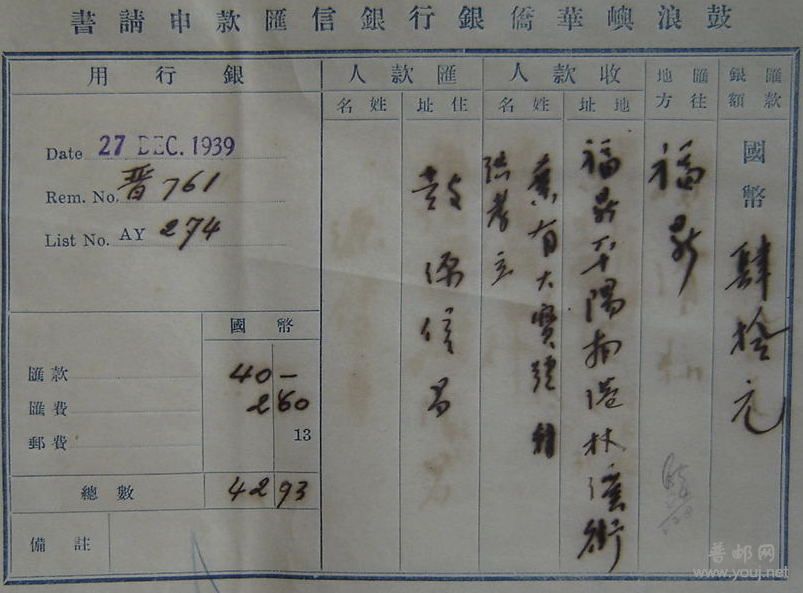 鼓浪嶼華僑銀行銀信匯款申請書
匯款銀額
國幣肆拾元
匯往地方
福鼎
收款人
地址
福鼎平陽南港林家衕
姓名
葉有大寶號轉
匯款人
住址
鼓源信局
姓名
銀行用
Date 27 DEC. 1939
Rem. No. 晋 761
List No. AY 274
國幣
匯款 40 —
匯費 2 80
郵費 13
總數 42 93
備註
普邮网
www.youj.net